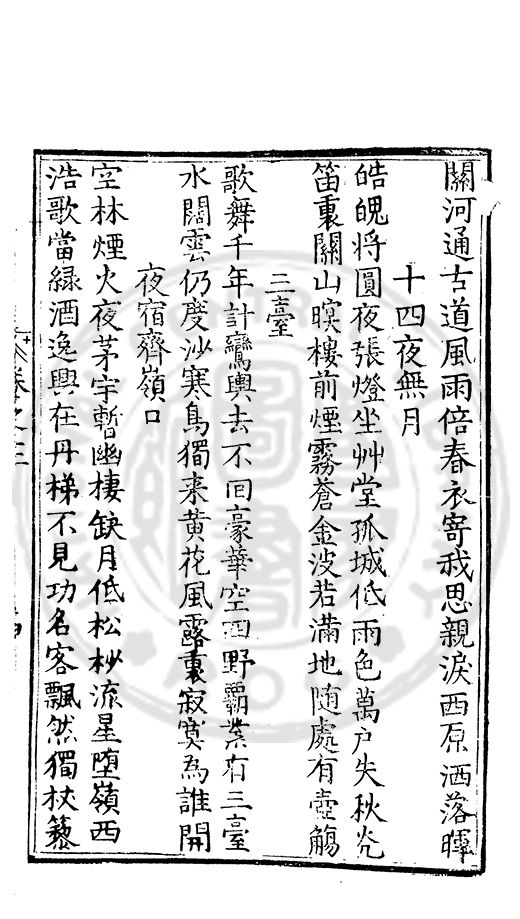 關河通古道風雨倍春衣寄我思親淚西原洒落暉
十四夜無月
皓魄將圓夜張燈坐艸堂孤城低雨色萬户失秋光
笛裏關山暝樓前煙霧蒼金波若滿地隨處有壺觴
三臺
歌舞千年計鸞輿去不回豪華空四野霸業有三臺
水闊雲仍度沙寒鳥獨来黄花風露裏寂寞為誰開
夜宿齊嶺口
空林煙火夜茅宇暫幽棲缺月低松杪流星堕嶺西
浩歌當緑酒逸興在丹梯不見功名客飄然獨杖藜
卷之三